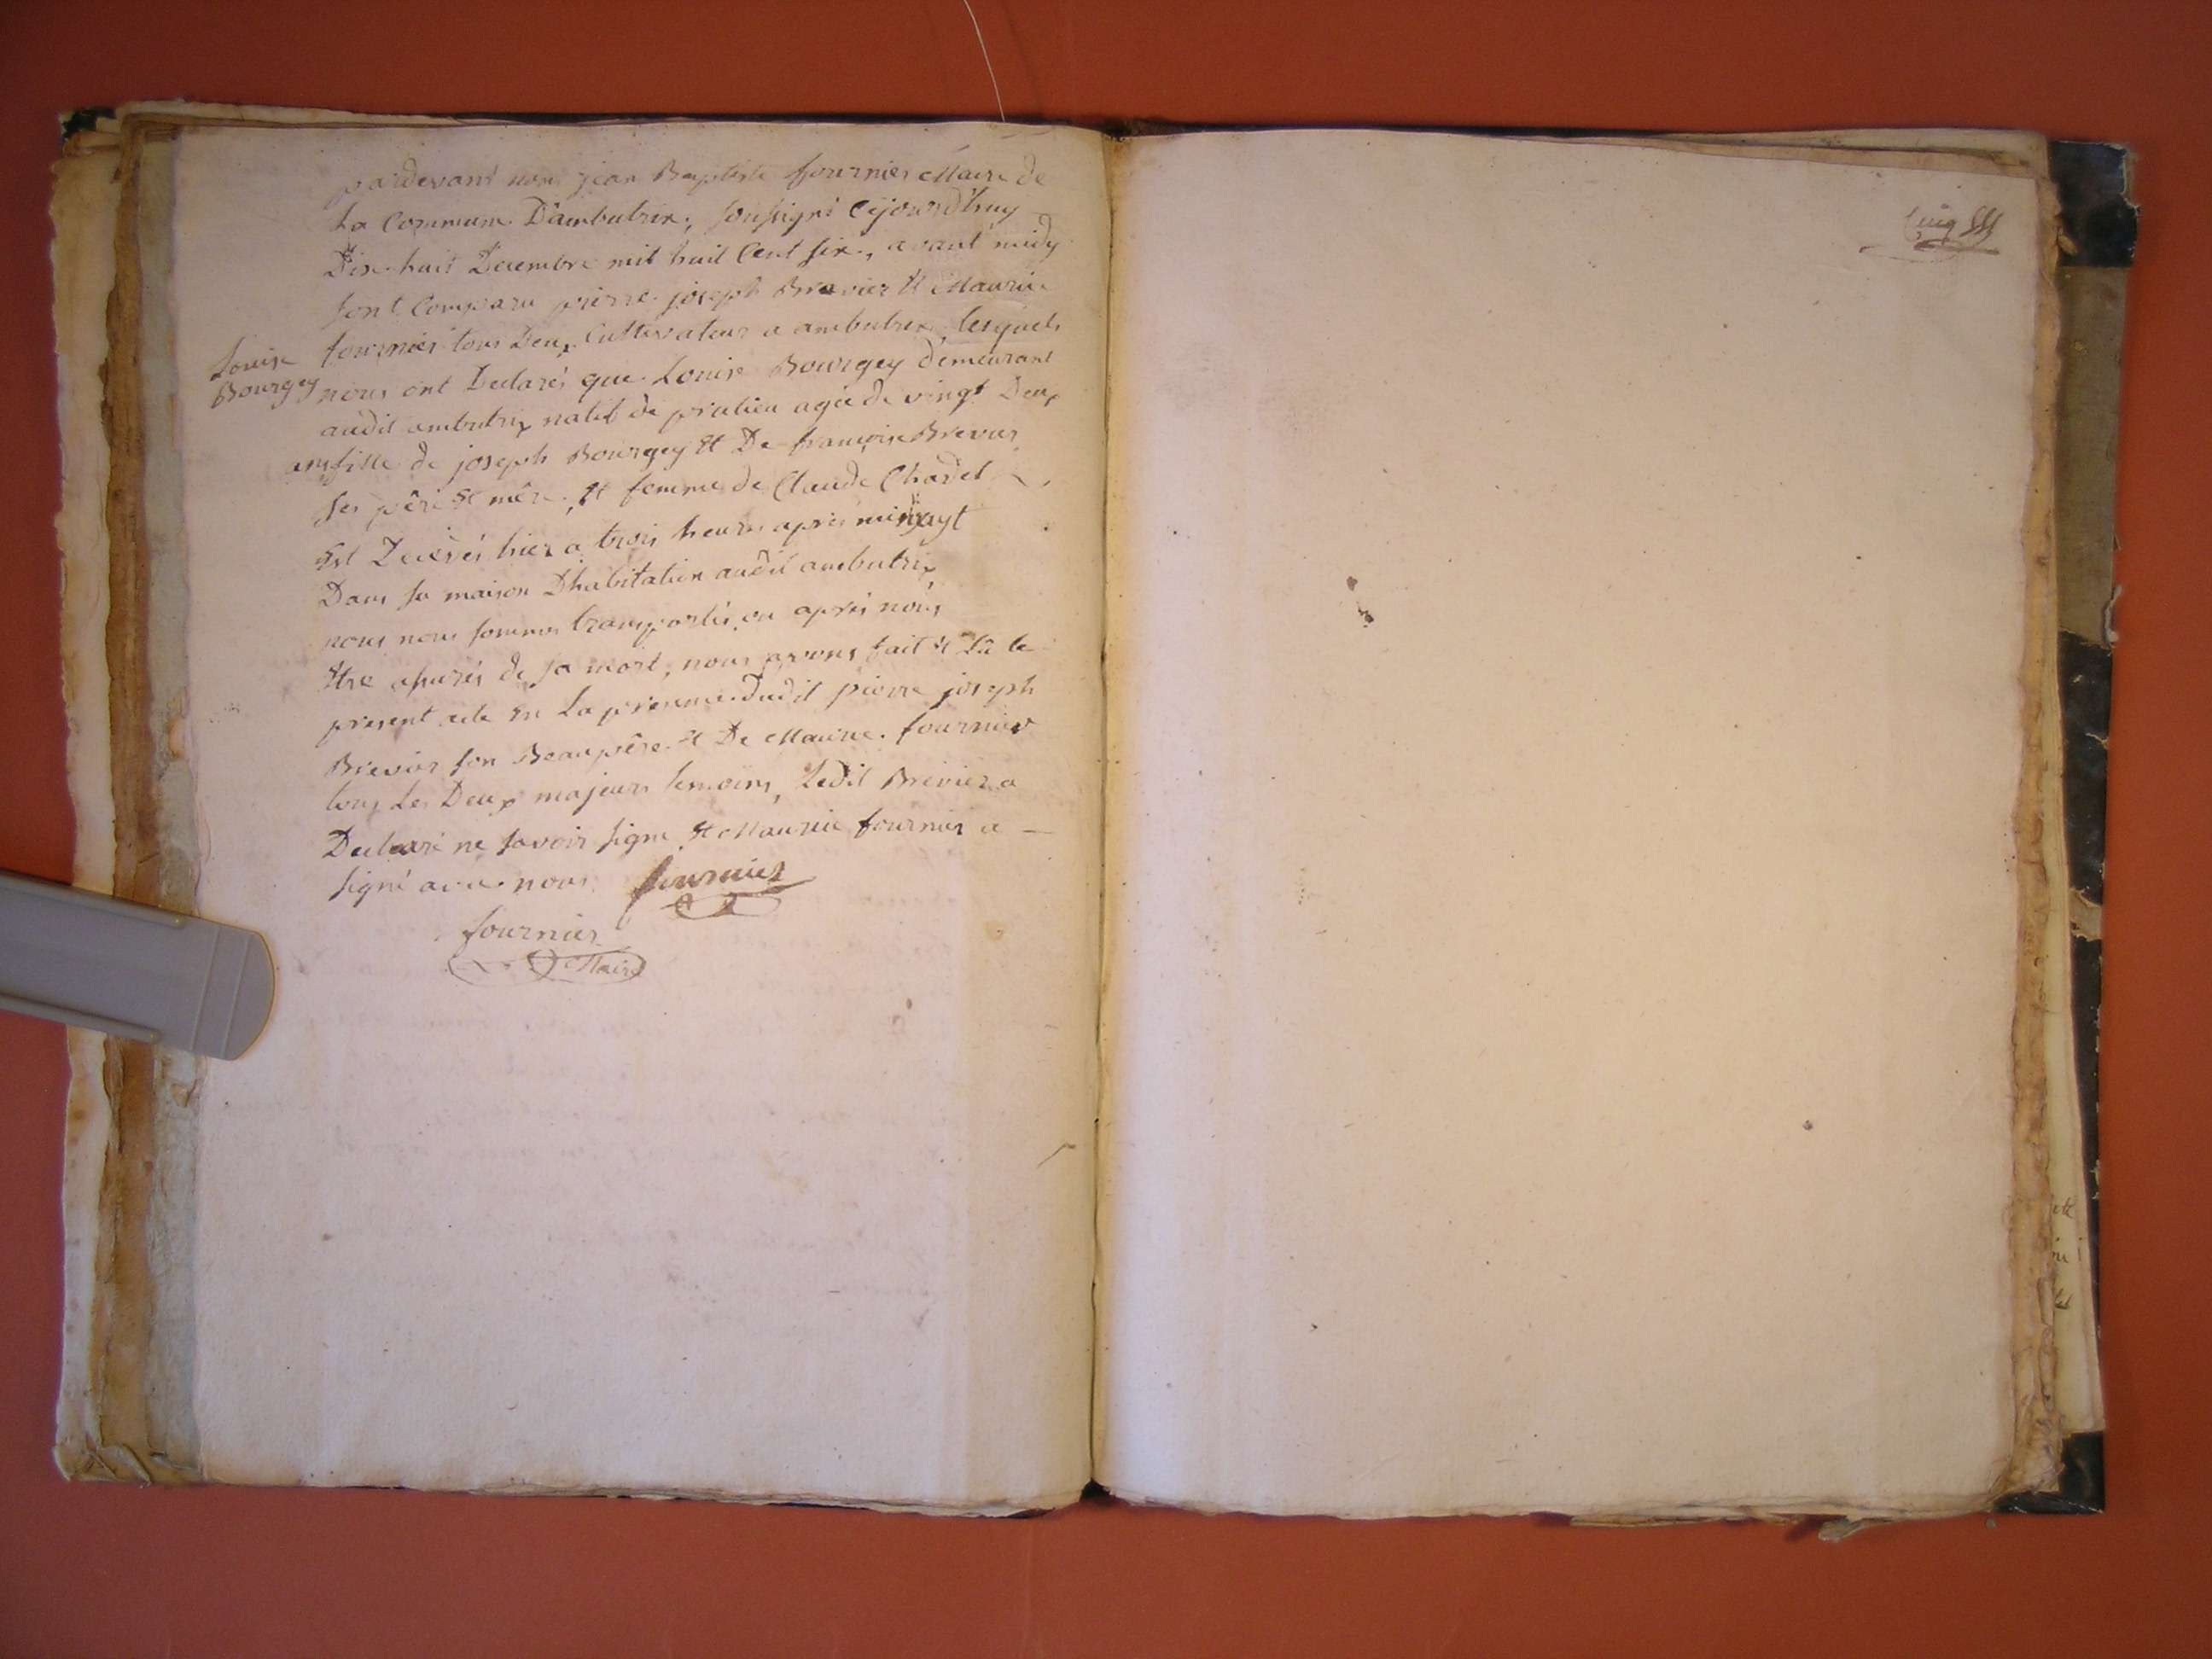 pardevant nous jean Baptiste fournier Maire de
La Commune D'ambutrix, soussigné Cejourd'huy
Dix-huit Decembre mil huit Cent six, avant midy
sont Comparu pierre joseph Brevier Et Maurice
fournier tous Deux Cultivateur a ambutrix, lesquels
Louise
Bourgey
nous ont Declarés que Louise Bourgey demeurant
audit ambutrix natif de prulieu agée de vingt Deux
ans fille de joseph Bourgey Et De françoise Brevier
ses père Et mère, Et femme de Claude Chardet
Est Decedés hier a trois heures après
Dans sa maison D'habitation audit ambutrix,
nous nous sommes transportés, ou après nous
Etre assurés de sa mort, nous avons fait Et Lû le
present acte En La presence dudit pierre joseph
Brevier son Beaupère Et De Maurice fournier
tous Les Deux majeurs temoins, Ledit Brevier a
Declaré ne savoir signe Et Maurice fournier a
signé avec nous fournier
fournier
Maire